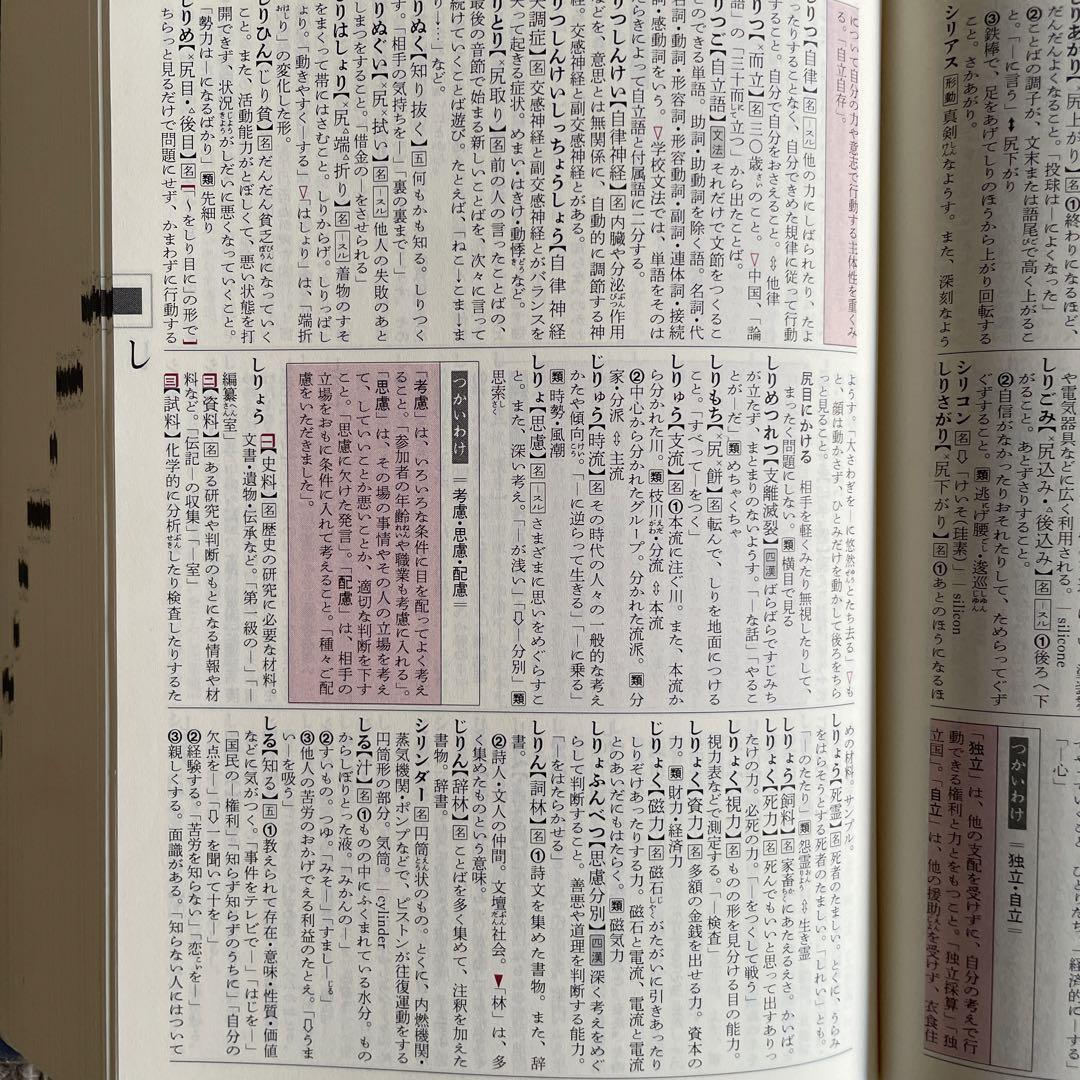 について自分の力や意志で行動する主体性を重くみ
る。「自立自存」。
しりつ【自律】名 他の力にしばられたり、たよ
ったりすることなく、自分できめた規律に従って行動
すること。自分で自分をおさえること。⇔他律
じりつ【而立】名 三〇歳のこと。▽中国、「論
語」の「三十而立つ」から出たことば。
じりつご【自立語】文法 それだけで文節をつくるこ
とのできる単語。助詞・助動詞を除く語。名詞・代
名詞・動詞・形容詞・形容動詞・副詞・連体詞・接続
詞・感動詞をいう。▽学校文法では、単語をそのは
たらきによって自立語と付属語に二分する。
じりつしんけい【自律神経】名 内臓や分泌作用
などを、意思とは無関係に、自動的に調節する神
経。交感神経と副交感神経とがある。
じりつしんけいしっちょうしょう【自律神経
失調症】名 交感神経と副交感神経とがバランスを
失って起きる症状。めまい・はきけ・動悸など。
しりとり【尻取り】名 前の人の言ったことばの、
最後の音節で始まる新しいことばを、次々に言って
続けていくことば遊び。たとえば、「ねこ→こま→ま
り→…」など。
しりぬく【知り抜く】五 何もかも知る。しりつく
す。「相手の気持ちを―」「裏の裏まで―」
しりぬぐい【尻拭い】名―スル 他人の失敗のあと
しまつをすること。「借金の―をさせられる」
しりはしょり【尻端折り】名―スル 着物のすそ
をまくって帯にはさむこと。しりからげ。しりっぱし
ょり。「動きやすく―する」▽「はしょり」は、「端折
り」の変化した形。
じりひん【じり貧】名 だんだん貧乏になっていく
こと。また、活動能力がとぼしくて、悪い状態を打
開できず、状況がしだいに悪くなっていくこと。
「勢力は―になるばかり」類 先細り
しりめ【尻目・後目】名【「～をしり目に」の形で】
ちらっと見るだけで問題にせず、かまわずに行動する
し
ようす。「大さわぎを―に悠然とたち去る」▽も
と、顔は動かさず、ひとみだけを動かして後ろをちら
っと見ること。
尻目にかける 相手を軽くみたり無視したりして、
まったく問題にしない。類 横目で見る
しりめつれつ【支離滅裂】四漢 ばらばらですじみち
が立たず、まとまりのないようす。「―な話」「やるこ
とが―だ」類 めちゃくちゃ
しりもち【尻餅】名 転んで、しりを地面につける
こと。「すべって―をつく」
しりゅう【支流】名 ①本流に注ぐ川。また、本流か
ら分かれた川。類 枝川・分流 ⇔本流
②中心から分かれたグループ。分かれた流派。類 分
家・分派 ⇔主流
じりゅう【時流】名 その時代の人々の一般的な考え
かたや傾向。「―に逆らって生きる」「―に乗る」
類 時勢・風潮
しりょ【思慮】名―スル さまざまに思いをめぐらすこ
と。また、深い考え。「―が浅い」「⇩―分別」類
思索
つかいわけ ＝考慮・思慮・配慮＝
「考慮」は、いろいろな条件に目を配ってよく考え
ること。「参加者の年齢や職業も考慮に入れる」。
「思慮」は、その場の事情やその人の立場を考え
て、していいことか悪いことか、適切な判断を下す
こと。「思慮に欠けた発言」。「配慮」は、相手の
立場をおもに条件に入れて考えること。「種々ご配
慮をいただきました」。
しりょう 一【史料】名 歴史の研究に必要な材料。
文書・遺物・伝承など。「第一級の―」「―
編纂室」
二【資料】名 ある研究や判断のもとになる情報や材
料など。「伝記―の収集」「―室」
三【試料】化学的に分析したり検査したりするた
めの材料。サンプル。
しりょう【死霊】名 死者のたましい。とくに、うらみ
をはらそうとする死者のたましい。「しれい」とも。
「―のたたり」類 怨霊 ⇔生き霊
しりょう【飼料】名 家畜にあたえるえさ。かいば。
しりょく【死力】名 死んでもいいと思って出すありっ
たけの力。必死の力。「―をつくして戦う」
しりょく【視力】名 ものの形を見分ける目の能力。
視力表などで測定する。「―検査」
しりょく【資力】名 多額の金銭を出せる力。資本の
力。類 財力・経済力
じりょく【磁力】名 磁石がたがいに引きあったり
しりぞけあったりする力。磁石と電流、電流と電流
とのあいだにもはたらく。類 磁気力
しりょふんべつ【思慮分別】四漢 深く考えをめぐ
らして判断すること。善悪や道理を判断する能力。
「―をはたらかせる」
しりん【詞林】名 ①詩文を集めた書物。また、辞
書。
②詩人・文人の仲間。文壇社会。▼「林」は、多
く集めたものという意味。
じりん【辞林】名 ことばを多く集めて、注釈を加えた
書物。辞書。
シリンダー 名 円筒状のもの。とくに、内燃機関・
蒸気機関・ポンプなどで、ピストンが往復運動をする
円筒形の部分。気筒。｜cylinder
しる【汁】名 ①ものの中にふくまれている水分。もの
からしぼりとった液。「みかんの―」
②すいもの。つゆ。「みそ―」「すまし―」
③他人の苦労のおかげでえる利益のたとえ。「⇩うま
い―を吸う」
しる【知る】五 ①教えられて存在・意味・性質・価値
などに気がつく。「事件をテレビで―」「はじを―」
「国民の―権利」「知らず知らずのうちに」「自分の
欠点を―」「⇩一を聞いて十を―」
②経験する。「苦労を知らない」「恋を―」
③親しくする。面識がある。「知らない人にはついて
シリアス 形動 真剣なようす。また、深刻なよう
シリコン 名 ⇩けいそ(珪素)｜silicon
「独立」は、他の支配を受けずに、自分の考えで行
動できる権利と力とをもつこと。「独立採算」「独
立国」。「自立」は、他の援助を受けず、衣食住
つかいわけ ＝独立・自立＝